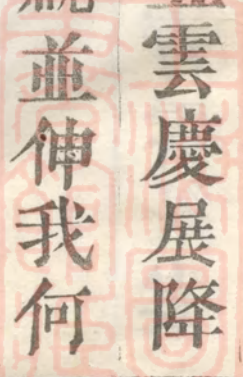 雲慶展降
並伸我何